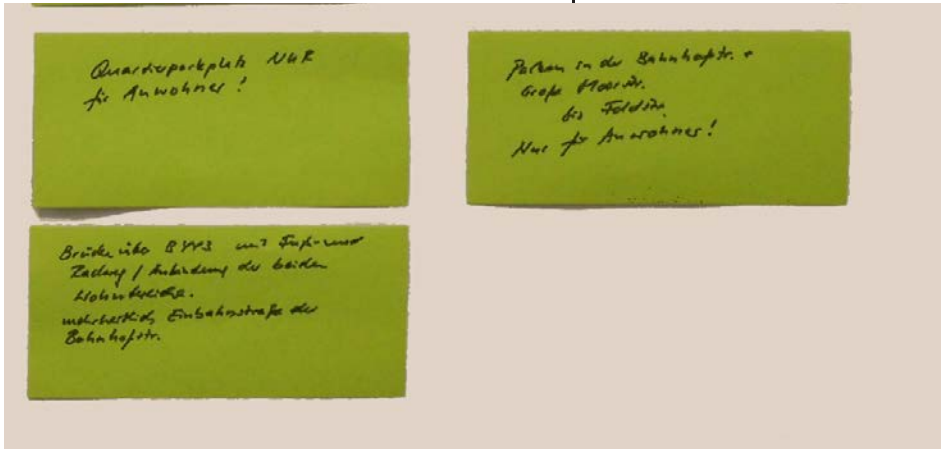 Quartierparkplatz NUR
für Anwohner!
Parken in der Bahnhofstr. +
Große Moorstr.
bis Feldstr.
Nur für Anwohner!
Brücke über B443 mit Fuß- und
Radweg / Anbindung der beiden
Wohnbereiche.
mehrheitlich Einbahnstraße der
Bahnhofstr.